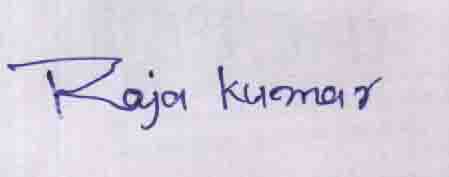 Raja Kumar